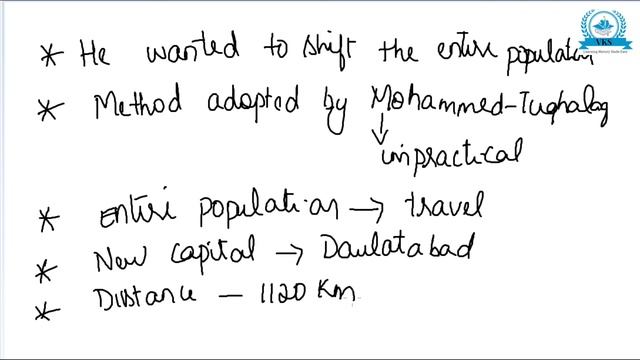 VKS
* He wanted to shift the entire population
* Method adopted by Mohammed-Tughalaq
↓
impractical
* Entire population → travel
* New capital → Daulatabad
* Distance – 1120 Km